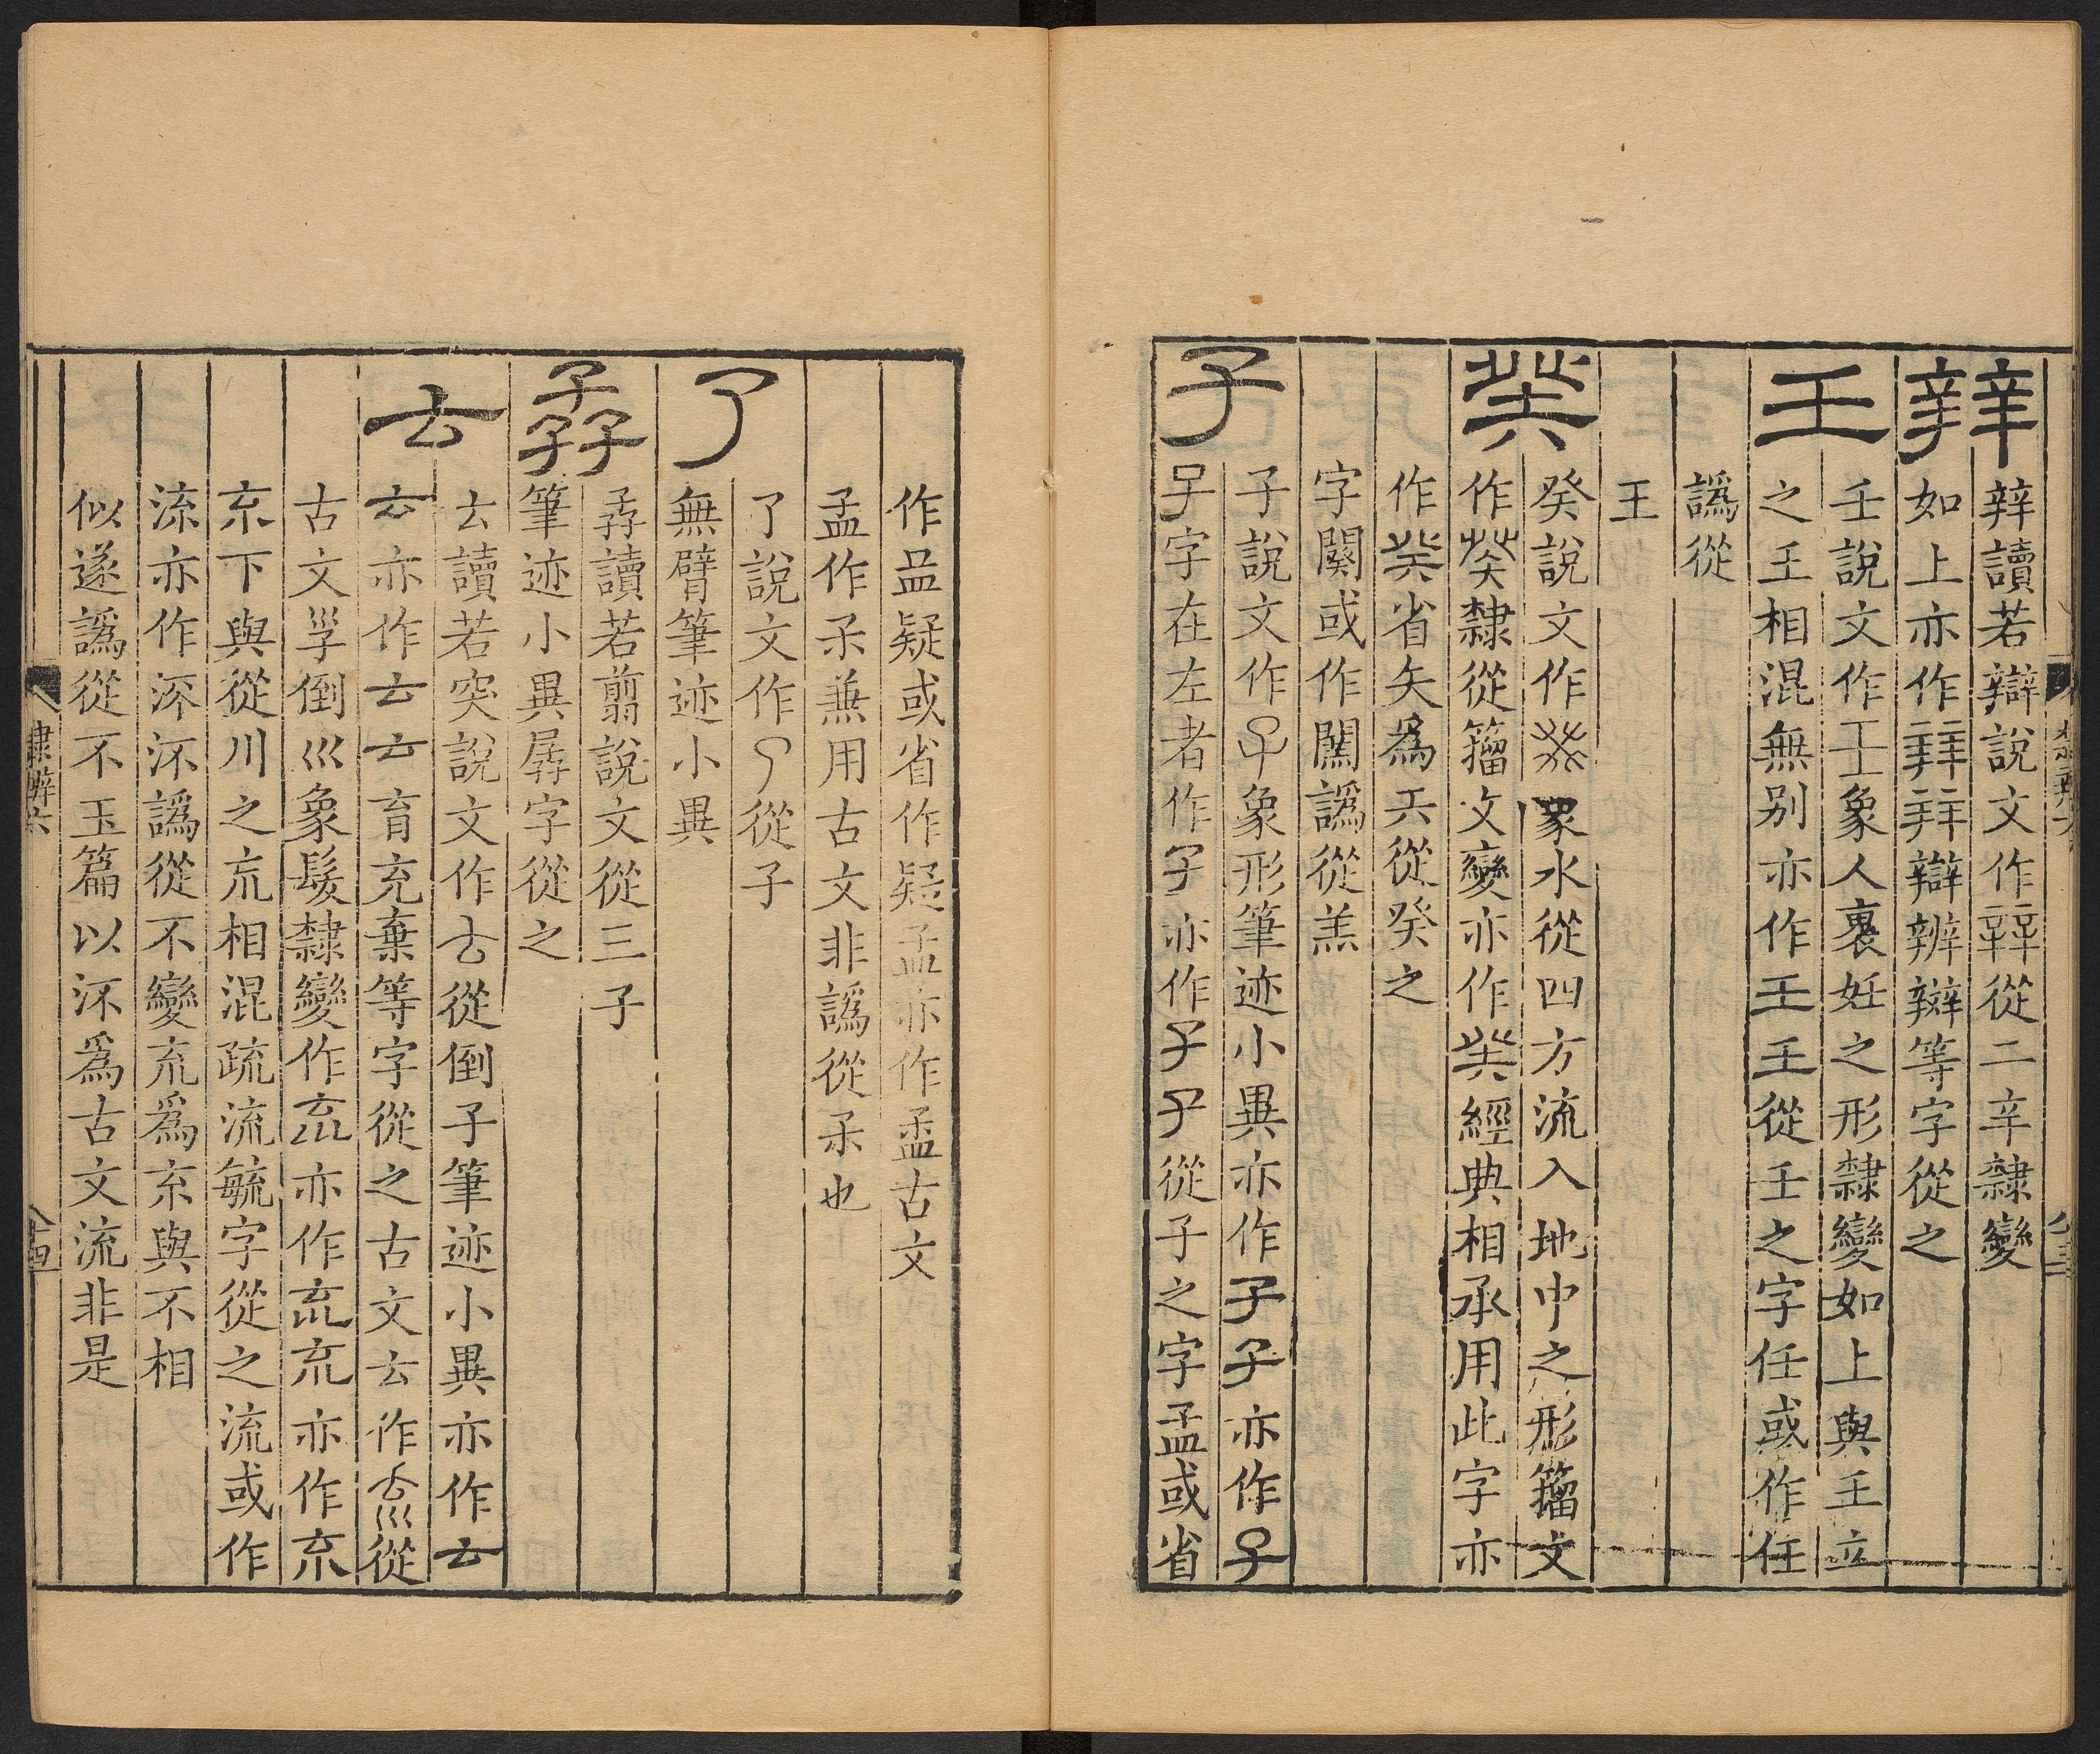 辡
辡讀若辯說文作辡從二辛隷變
如上亦作辡辡辯辨辧等字從之
壬
壬說文作壬象人裹妊之形隷變如上與王立
之王相混無别亦作王王從壬之字任或作任
譌從
王
癸
癸說文作癸象水從四方流入地中之形籀文
作癸隷從籀文變亦作癸經典相承用此字亦
作癸省矢爲天從癸之
字闋或作闋譌從羔
子
子說文作子象形筆迹小異亦作子子亦作子
子字在左者作子亦作子子從子之字孟或省
作孟疑或省作疑孟亦作孟古文
孟作㒫兼用古文非譌從㒫也
了
了說文作了從子
無臂筆迹小異
孨
孨讀若翦說文從三子
筆迹小異孱字從之
𠫓
𠫓讀若突說文作𠫓從倒子筆迹小異亦作𠫓
𠫓亦作𠫓𠫓育充棄等字從之古文𠫓作㐬從
古文㜽倒巛象髮隷變作㐬亦作㐬㐬亦作㐬
㐬下與從川之㐬相混疏流毓字從之流或作
流亦作㳅㳅譌從不變㐬爲㐬與不相
似遂譌從不玉篇以㳅爲古文流非是
隷辨六